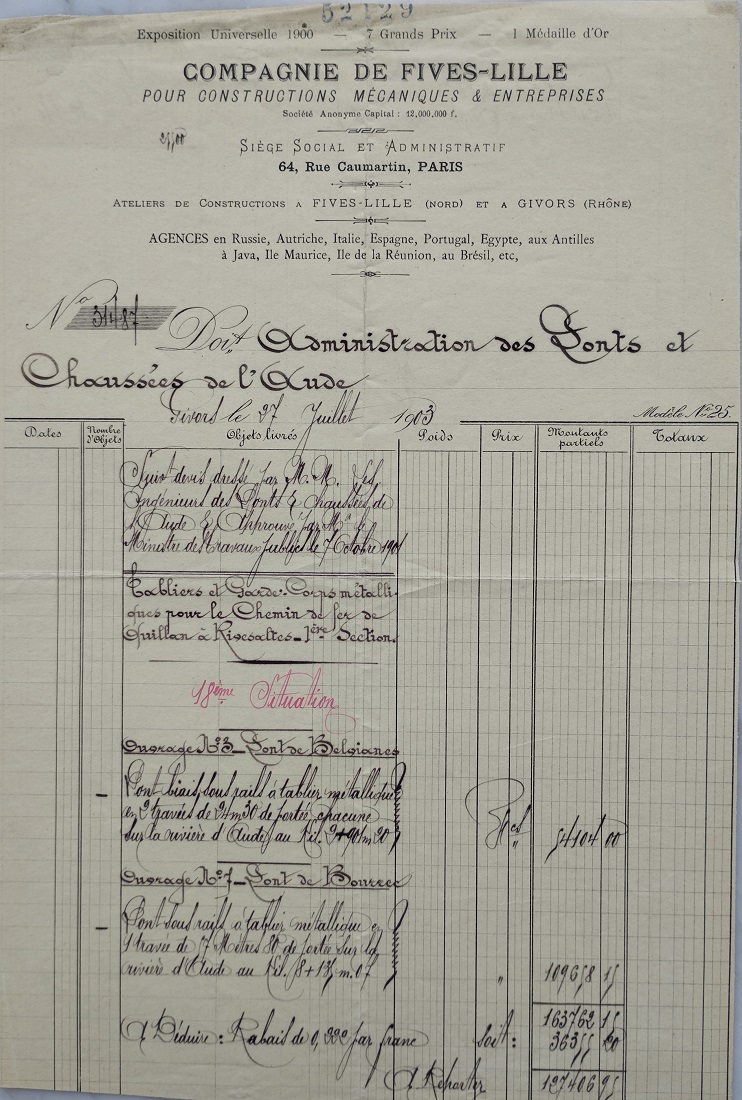 52129
Exposition Universelle 1900 — 7 Grands Prix — 1 Médaille d'Or
COMPAGNIE DE FIVES-LILLE
POUR CONSTRUCTIONS MÉCANIQUES & ENTREPRISES
Société Anonyme Capital : 12,000.000 f.
SIÈGE SOCIAL ET ADMINISTRATIF
64, Rue Caumartin, PARIS
ATELIERS DE CONSTRUCTIONS A FIVES-LILLE (NORD) ET A GIVORS (RHÔNE)
AGENCES en Russie, Autriche, Italie, Espagne, Portugal, Egypte, aux Antilles
à Java, Ile Maurice, Ile de la Réunion, au Brésil, etc,
No
Doit Administration des Ponts et
Chaussées de l'Aude
Givors le 27 Juillet 1903
Modèle No 25.
Dates Nombre d'Objets Objets livrés Poids Prix Montants partiels Totaux
Suivt devis dressé par M.M. les
Ingénieurs des Ponts & Chaussées de
l'Aude & Approuvé par Mr le
Ministre des Travaux publics le 7 Octobre 1901
Tabliers et Garde-Corps métalli-
ques pour le Chemin de fer de
Quillan à Rivesaltes - 1ère Section.
18ème Situation
Ouvrage No 3 - Pont de Belgianes
Pont biais, sous rails à tablier métallique
en 2 travées de 24m30 de portée chacune
sur la rivière d'Aude, au Kil. 2+901m20
54104 00
Ouvrage No 7 - Pont de Bourrec
Pont sous rails à tablier métallique en
1 travée de 17 Mètres 80 de portée sur la
rivière d'Aude au Kil. 8+135m.07 " 109658 15
163762 15
A Déduire : Rabais de 0,222 par franc soit : 36355 20
A Reporter 127406 95